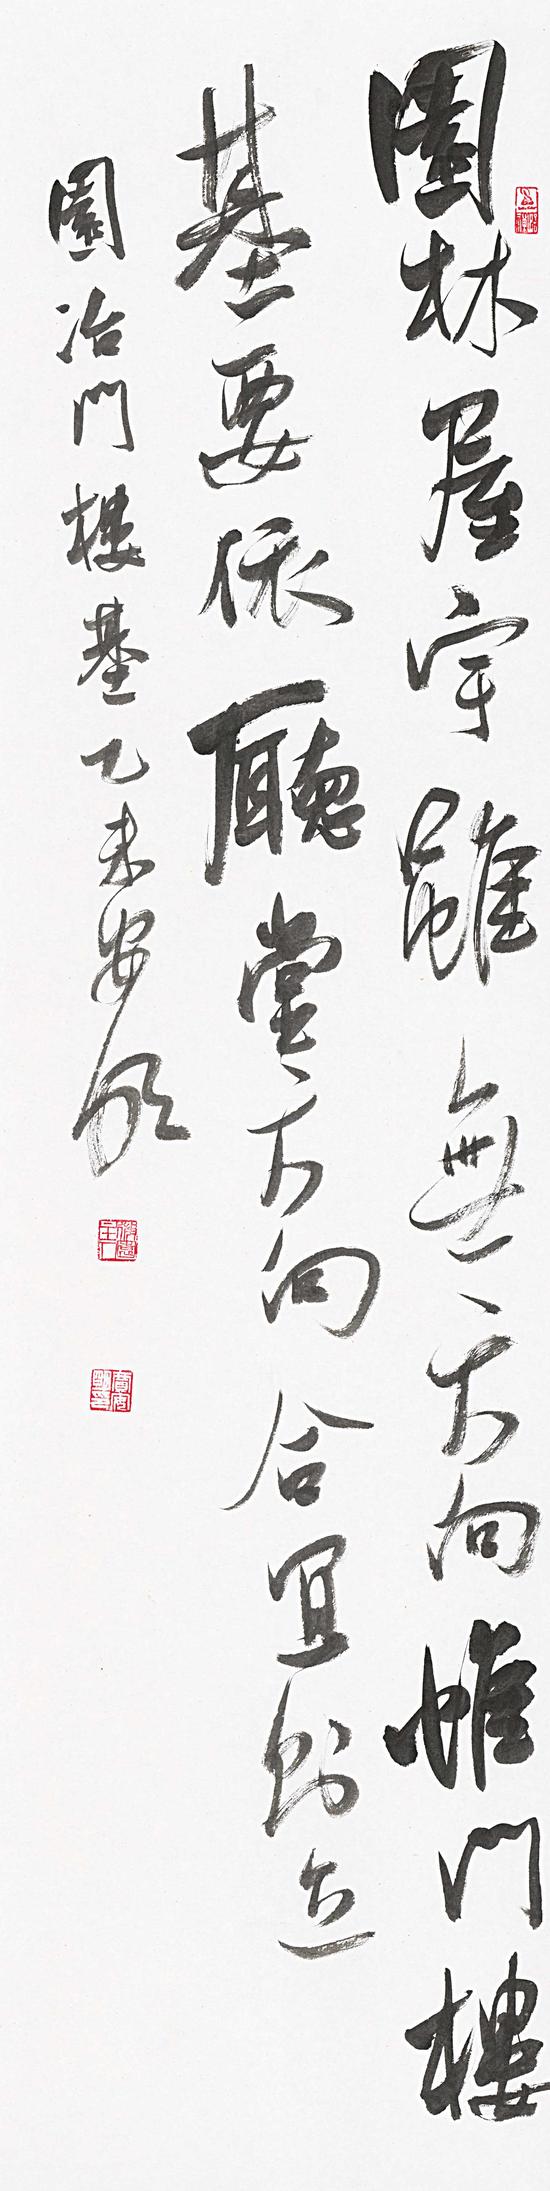 園林屋宇雖無方向惟門樓
基要依廳堂方向合宜則立
園冶門樓基乙未安